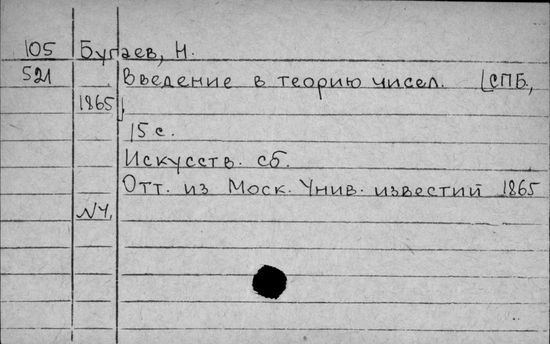 105 Бугаев, Н.
521 Введение в теорию чисел. [СПБ.,
1865],
15 с.
Искусств. сб.
Отт. из Моск. Унив. известий 1865
№4.